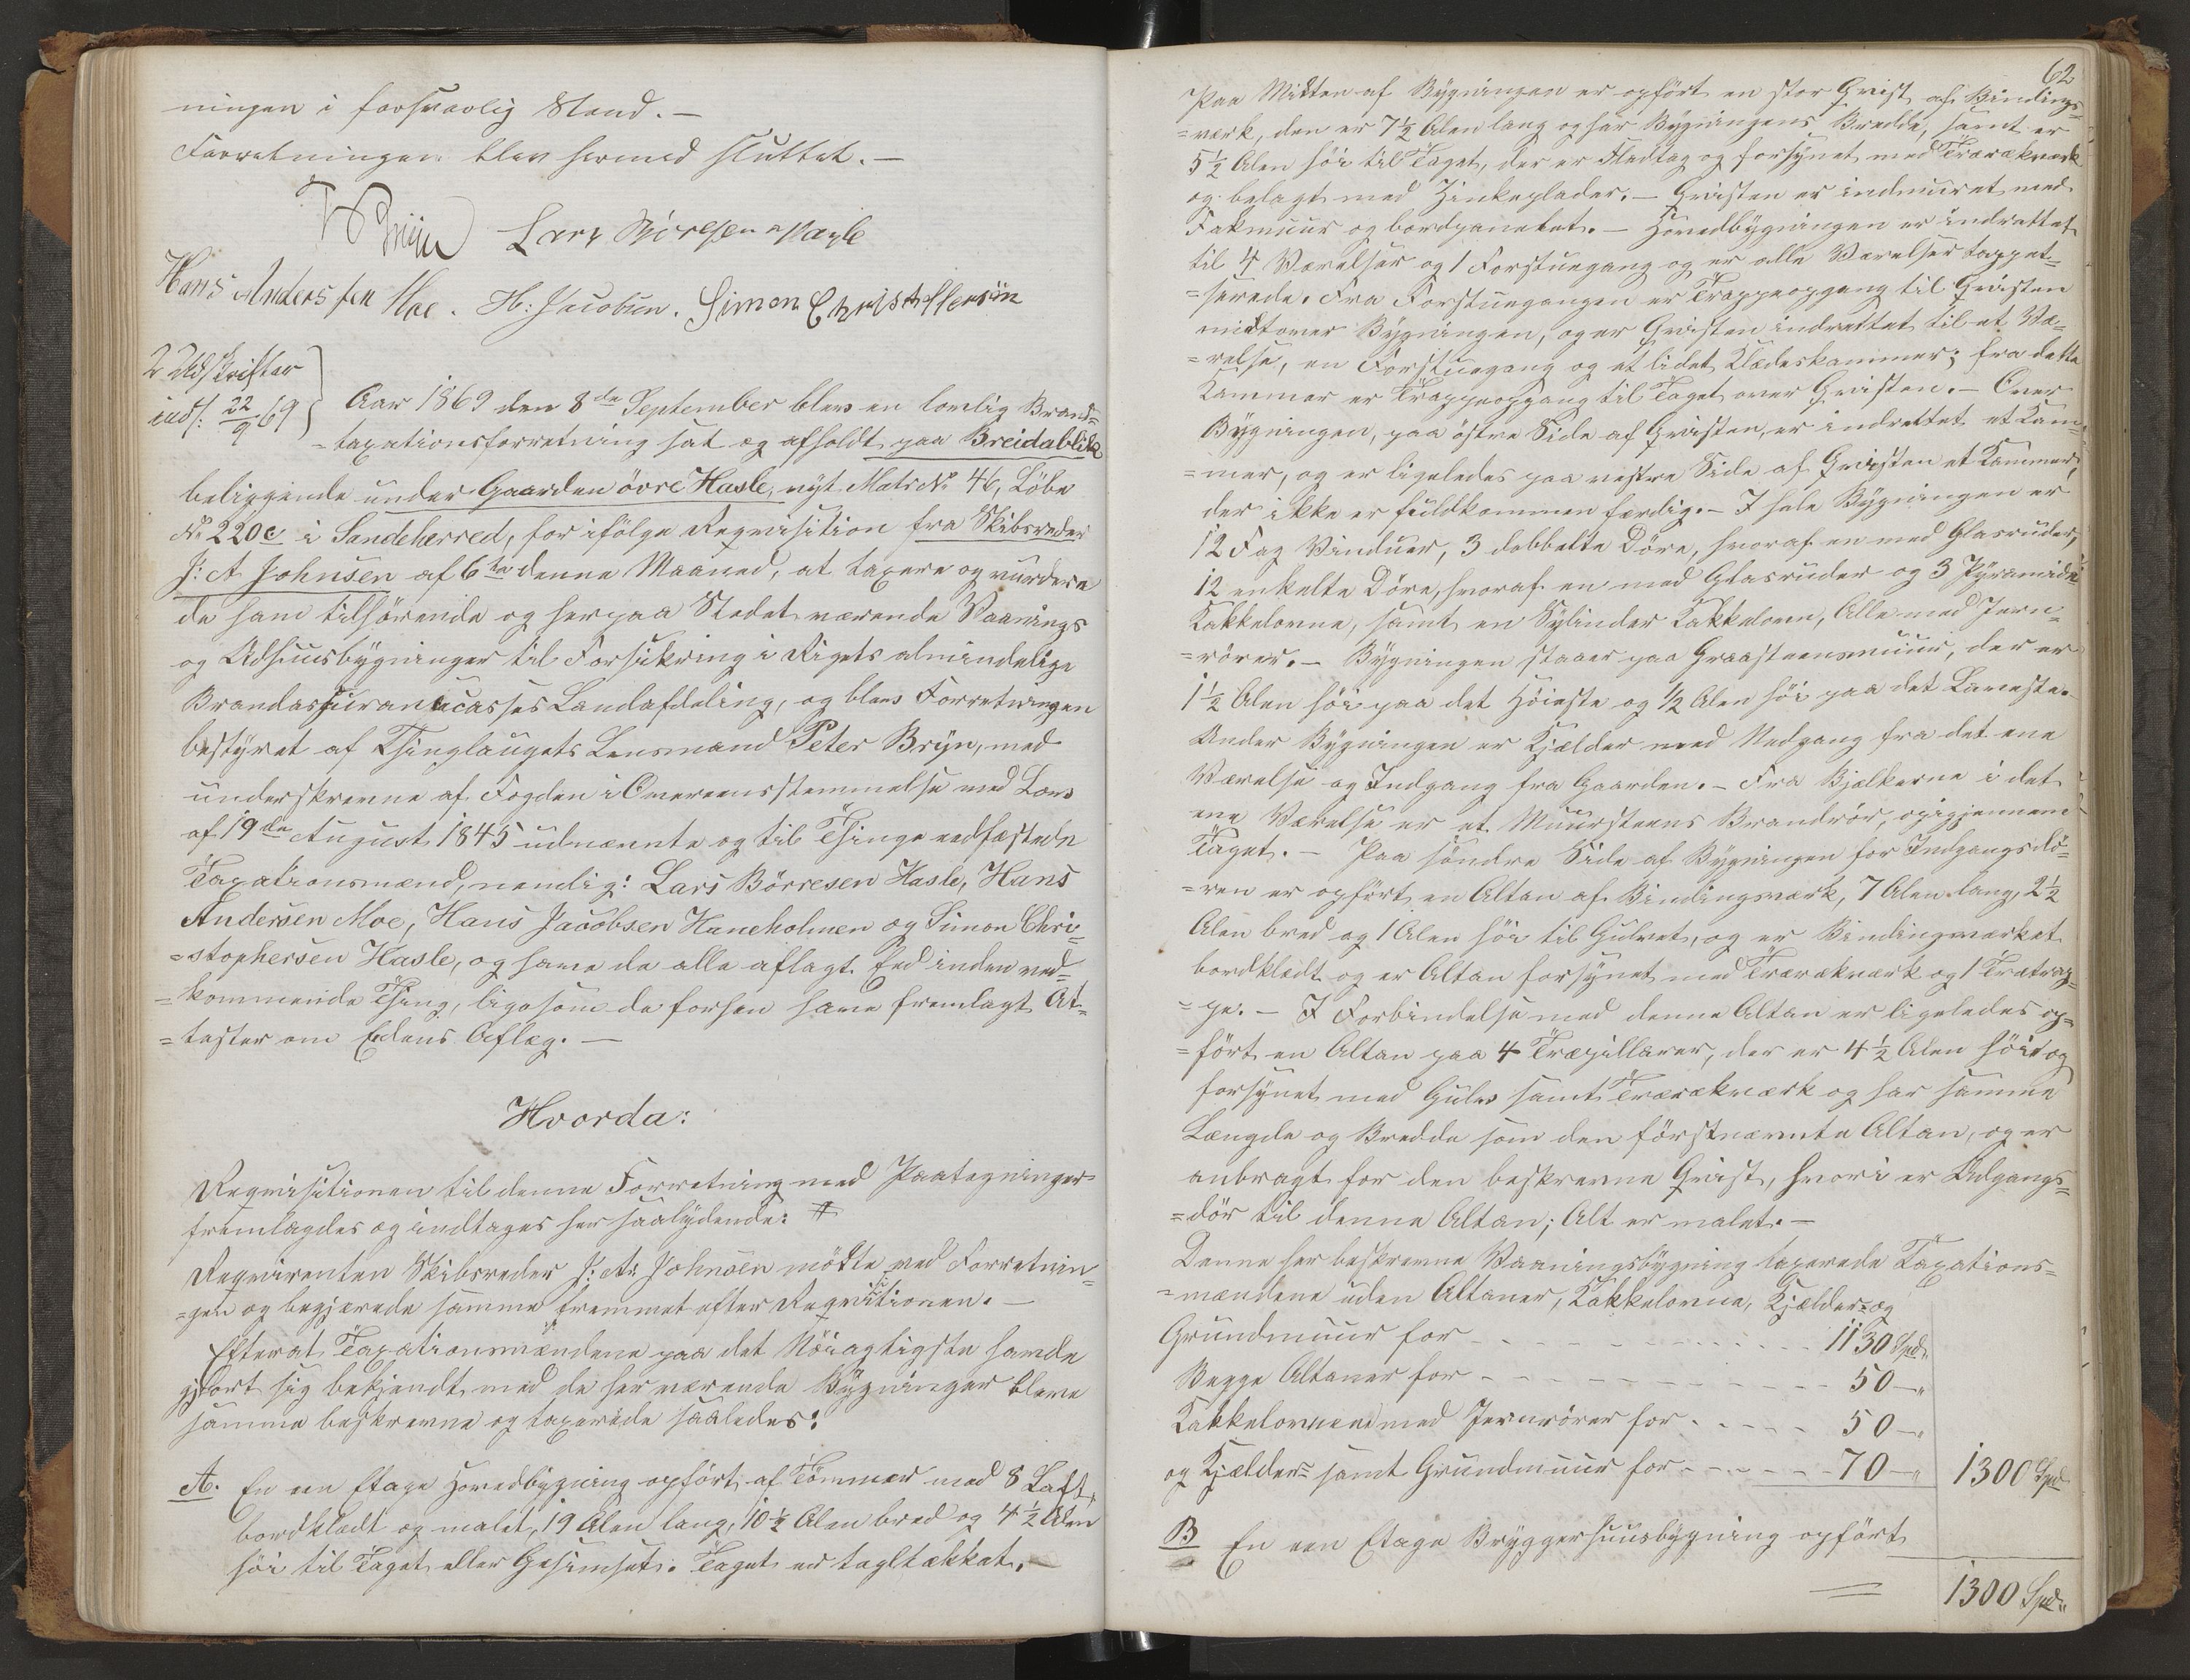 ningen i forsvarlig Stand. –
Forretningen blev hermed sluttet. –
P Brijn Lars Börresen Hasle
Hans Andersen Moe. H: Jacobsen. Simon Christoffersøn
2 Udskrifter
uds: 22/9 69
Aar 1869 den 8de September blev en lovlig Brand=
=taxationsforretning sat og afholdt paa Breidablik
beliggende under Gaarden övre Hasle, nyt Matr. No 46, Löbe
No 220c i Sandeherred, for ifölge Reqvisition fra Skibsreder
J: A Johnsen af 6te denne Maaned, at taxere og vurdere
de ham tilhörende og herpaa Stedet værende Vaanings
og Udhuusbygninger til Forsikring i Rigets almindelige
Brandassurancecasses Landafdeling, og blev Forretningen
bestyret af Thinglaugets Lensmand Peter Brijn, med
underskrevne af Fogden i Overeensstemmelse med Lov
af 19de August 1845 udnævnte og til Thinge edfæstede
Taxationsmænd, nemlig: Lars Börresen Hasle, Hans
Andersen Moe, Hans Jacobsen Haneholmen og Simon Chri=
=stophersen Hasle, og have de alle aflagt Eed inden ved=
=kommende Thing, ligesom de forhen have fremlagt At=
=tester om Edens Aflæg. –
Hvorda:
Reqvisitionen til denne Forretning med Paategninger
fremlagdes og indtages her saalydende: #
Reqvirenten Skibsreder J: A: Johnsen mödte ved Forretnin=
=gen og begjærede samme fremmet efter Reqvisitionen. –
Efterat Taxationsmændene paa det Nöiagtigste havde
gjort sig bekjendt med de her værende Bygninger bleve
samme beskrevne og taxerede saaledes:
A. En een Etage Hovedbygning opfört af Tömmer med 8 Laft,
bordklædt og malet, 19 Alen lang, 10½ Alen bred og 4½ Alen
höi til Taget eller Gesimset. Taget er tagltækket. –
62
Paa Midten af Bygningen er opfört en stor Qvist af Bindings=
=værk, den er 7½ Alen lang og har Bygningens Bredde, samt er
5½ Alen höi til Taget, der er Fladtag og forsynet med Trærækværk
og belagt med Zinkeplader. – Qvisten er indmuret med
Fakmuur og bordpanelet. – Hovedbygningen er indrettet
til 4 Værelser og 1 Forstuegang og er alle Værelser tappet=
=serede. Fra Forstuegangen er Trappeopgang til Qvisten
midtover Bygningen, og er Qvisten indrettet til et Væ=
=relse, en Forstuegang og et lidet Klædeskammer; fra dette
Kammer er Trappeopgang til Taget over Qvisten. – Over
Bygningen, paa östre Side af Qvisten, er indrettet et Kam=
=mer, og er ligeledes paa vestre Side af Qvisten et Kammer,
der ikke er fuldkommen færdig. – I hele Bygningen er
12 Fag Vinduer, 3 dobbelte Döre, hvoraf en med Glasruder,
12 enkelte Döre, hvoraf en med Glasruder og 3 Pyramide
Kakkelovne, samt en Sylinder Kakkelovn, Alle med Jern=
=rörer. – Bygningen staaer paa Graasteensmuur, der er
1½ Alen höi paa det Höieste og ½ Alen höi paa det Laveste.
Under Bygningen er Kjælder med Nedgang fra det ene
Værelse og Indgang fra Gaarden. – Fra Bjælkerne i det
ene Værelse er et Muursteens Brandrör, opigjennem
Taget. – Paa söndre Side af Bygningen for Indgangsdö=
=ren er opfört en Altan af Bindingsværk, 7 Alen lang, 2½
Alen bred og 1 Alen höi til Gulvet, og er Bindingsværket
bordklædt og er Altan forsynet med Trærækværk og 1 Trætrap=
=pe. – I Forbindelse med denne Altan er ligeledes op=
=fört en Altan paa 4 Træpillarer, der er 4½ Alen höi og
forsynet med Gulv samt Trærækværk og har samme
Længde og Bredde som den förstnævnte Altan, og er
anbragt for den beskrevne Qvist, hvori er Udgangs=
=dör til denne Altan; Alt er malet. –
Denne her beskrevne Vaaningsbygning taxerede Taxations=
=mændene uden Altaner, Kakkelovne, Kjælder og
Grundmuur for 1130 Spd.
Begge Altaner for 50 – "
Kakkelovnene med Jernrörer for 50 – "
og Kjælder= samt Grundmuur for 70 – " 1300 Spd
B En een Etage Bryggerhuusbygning opfört
1300 Spd.